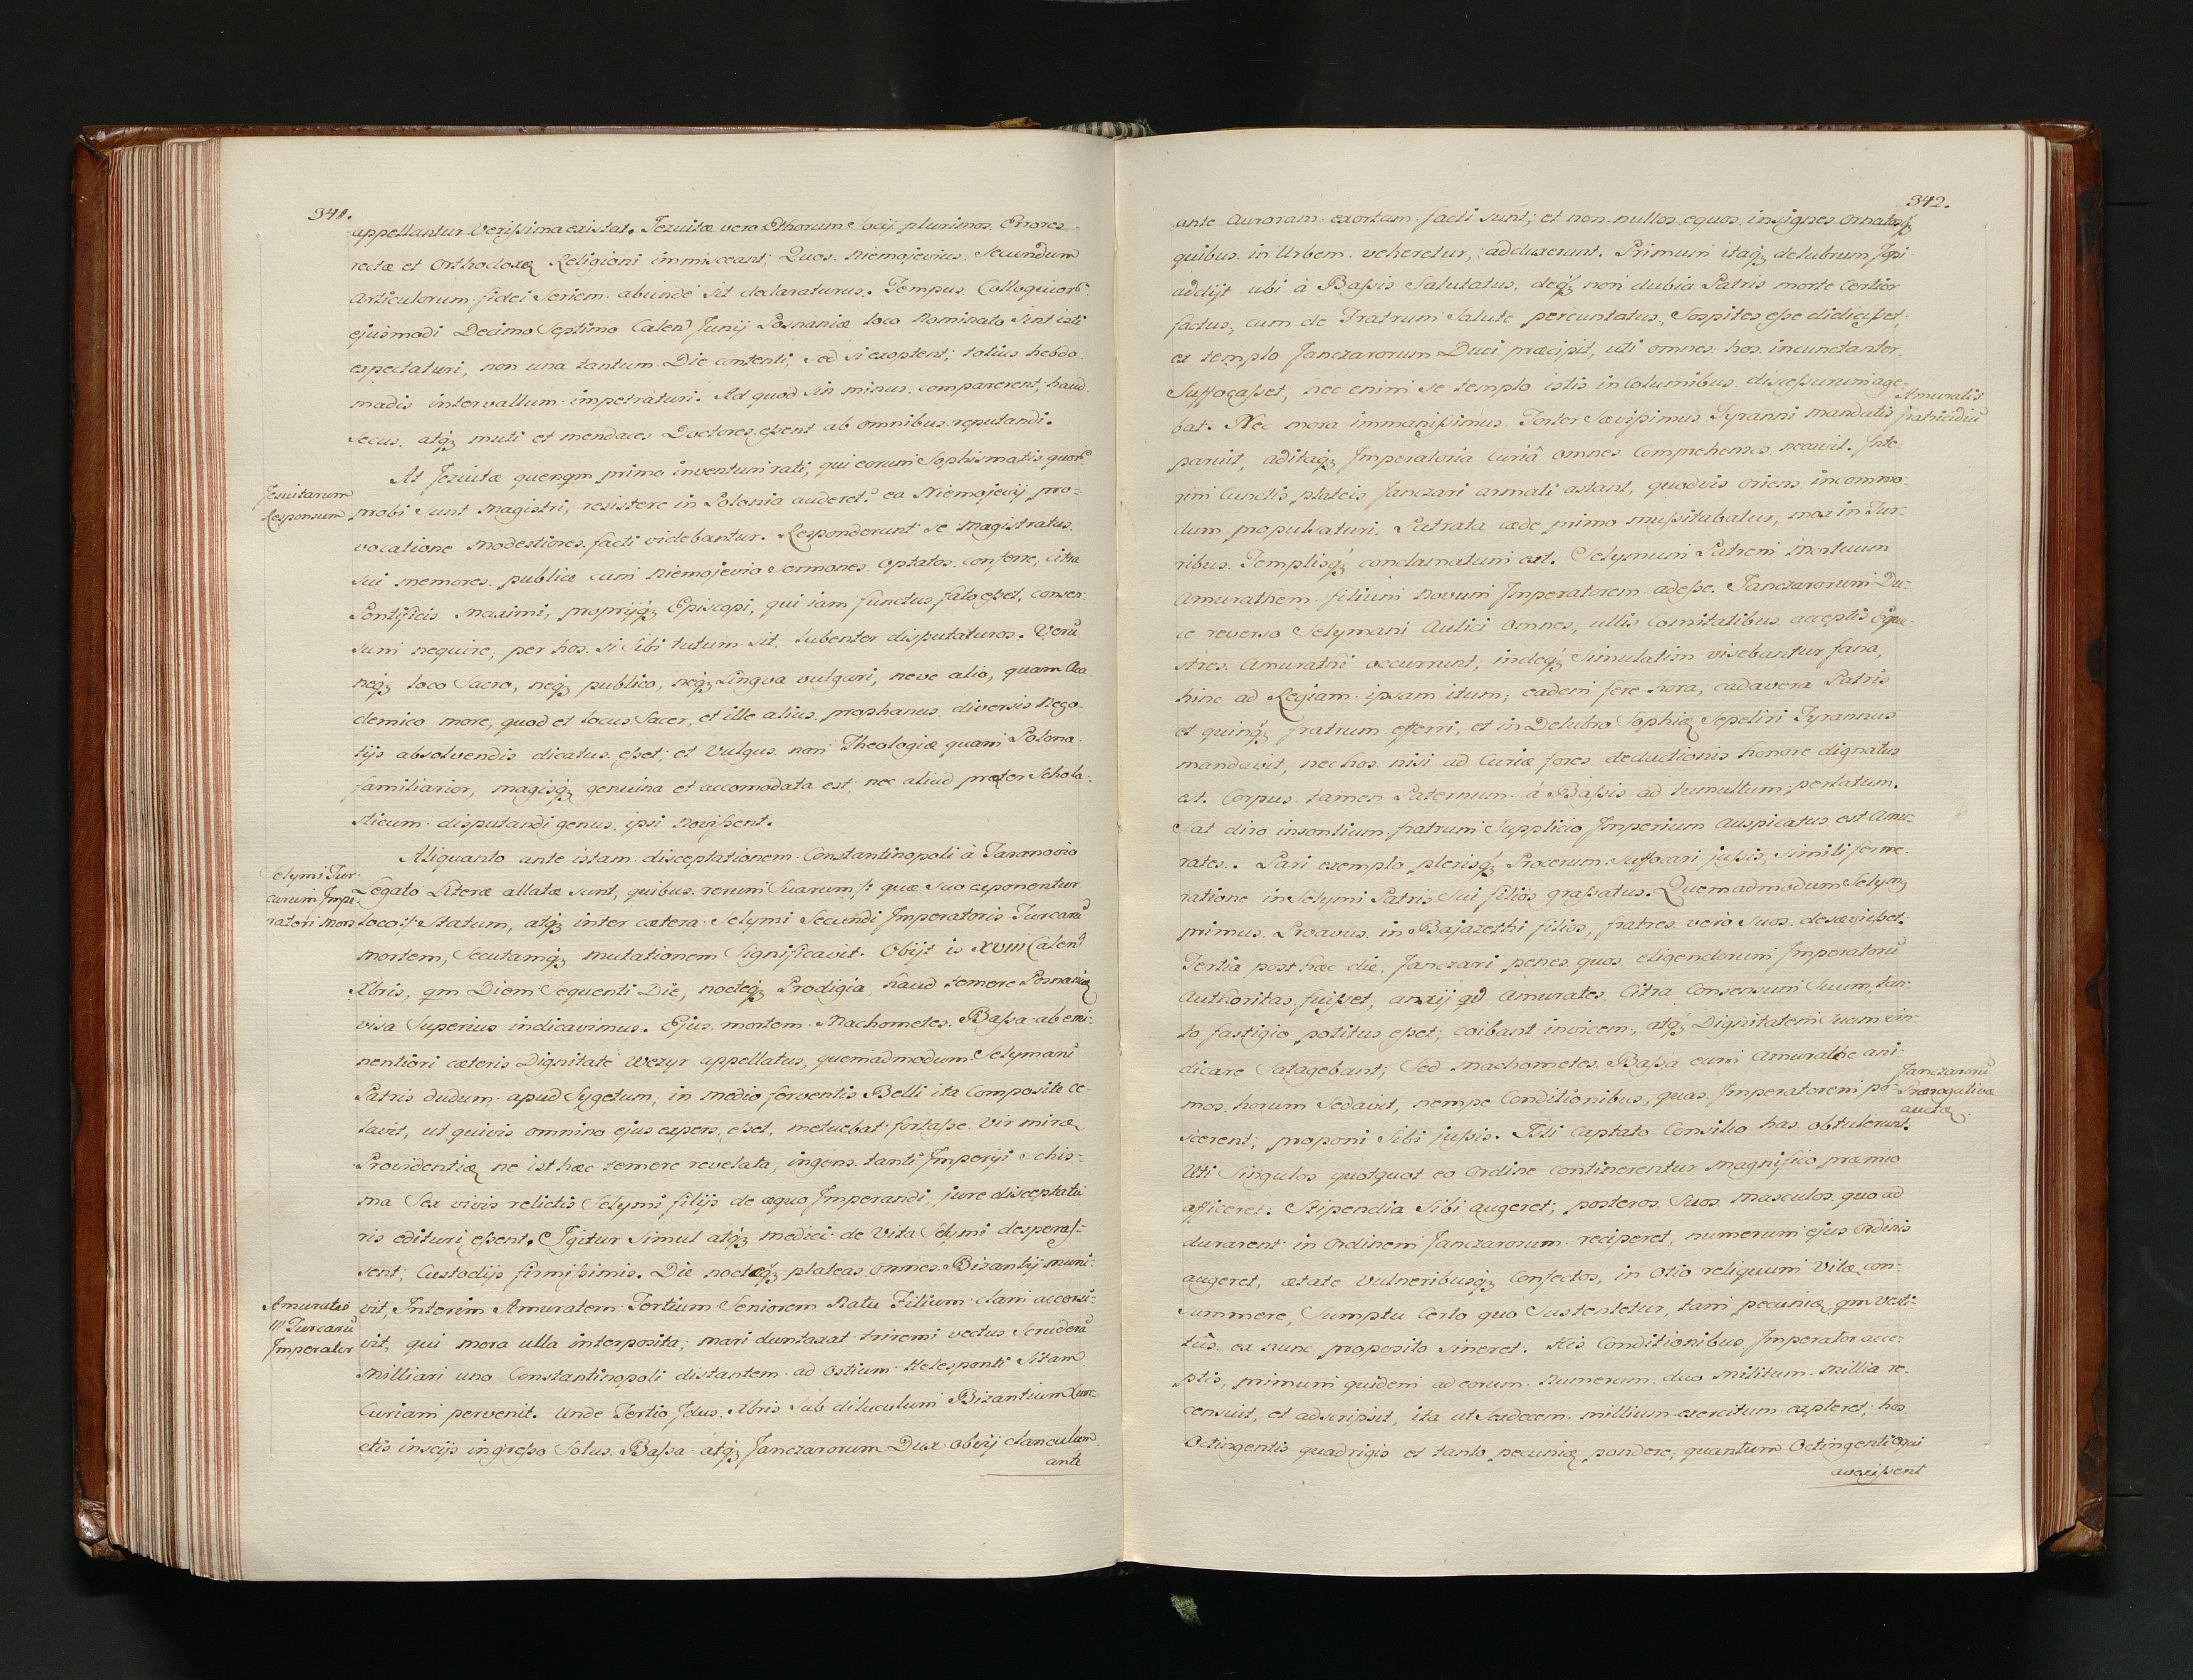 341.
appellantur Verißima existat. Jezuitæ vero Ethorum Socij plurimos Errores
rectæ et Orthodoxæ Religioni immisceant; Quos Niemojevius Secundum
Articulorum fidei Seriem abunde sit declaraturus. Tempus Colloquior̃
ejusmodi Decimo Septimo Calen Junij Posnaniæ loco Nominato sint isti
expectaturi, non una tantum Die contenti, sed si exoptent; totius hebdo
madis intervallum impetraturi. Ad quod sin minus comparerent haud
secus atq; muti et mendaces Doctores eßent ab omnibus reputandi.
At Jezuitæ quenqm primo inventum rati, qui eorum Sophismatis quor̃
Jesuitarum
Responsum
probi sunt Magistri, resistere in Polonia auderet? ea Niemojevij pro-
vocatione Modestiores facti videbantur. Responderunt se Magistratus
sui memores publice cum Niemojevio Sermones Optatos conferre, citra
Pontificis Maximi, proprijq; Episcopi, qui iam functus fato eßet, consen
sum nequire; per hos si sibi tutum sit, lubenter disputaturos. Verũ
neq; loco Sacro, neq; publico, neq; Lingva vulgari, neve alio, quam Aca
demico more, quod et locus Sacer, et ille alius prophanus diversis Nego-
tijs absolvendis dicatus eßet; et Vulgus non Theologiæ quam Polona
familiarior, magisq; genuina et accomodata est; nec aliud præter Schola-
sticum disputandi genus ipsi Novißent.
Aliquanto ante istam disceptationem Constantinopoli à Taranovio
Selymi Tur
carum Impe
ratori Mors
Legato Literæ allatæ sunt, quibus rerum Suarum /: quæ suo exponentur
loco :/ Statum, atq; inter cætera Selymi Secundi Imperatoris Turcarũ
mortem, Secutamq; mutationem Significavit. Obijt is XVIII Calen
Xbris, qm Diem Sequenti Die, nocteq; Prodigia haud temere Posnaniæ
visa Superius indicavimus. Ejus mortem Machometes Baßa ab emi-
nentiori cæteris Dignitate Wezyr appellatus, quemadmodum Selymani
Patris dudum apud Sygetum, in medio ferventis Belli ita Composite ce-
lavit, ut quivis omnino ejus expers eßet, metuebat fortaße Vir miræ
Providentiæ ne ist hæc temere revelata, ingens tanti Imperij Schis-
ma Sex vivis relictis Selymi filijs de æquo Imperandi jure disceptatu
ris edituri eßent. Igitur Simul atq; medici de Vita Selymi desperaß-
sent; Custodijs firmißimis Die nocteq; plateas omnes Bizantij muni-
Amurates
III Turcarũ
Imperator
vit, Interim Amuratem Tertium Seniorem Natu Filium clam accersi-
vit, qui mora ulla interposita; mari duntaxat triremi vectus Scuderã
Milliari uno Constantinopoli distantem ad Ostium Helesponti Sitam
Curiam pervenit. Unde Tertio Idus Xbris Sub diluculum Bizantium Cun-
ctis inscijs ingreßo Solus Baßa atq; Janczarorum Dux obvij clanculum
ante
342.
ante Auroram exortam facti sunt; et non nullos equos insignes ornatosq;
quibus in Urbem veheretur, adduxerunt. Primum itaq; delubrum Jpsi
addijt ubi à Baßis Salutatus, deq; non dubia Patris morte Certior
factus, cum de Fratrum Salute percuntatus, Sospites eße didicißet;
ex templo Janczarorum Duci præcipit, uti omnes hos incunctanter
Suffocaßet, nec enim se templo istis in Columibus discessurum age-
Amuratis
fratricidiũ
bat. Nec mora immanißimus Tortor Sævißimus Tyranni mandatis
paruit, aditaq; Imperatoria Curiâ omnes Comprehensos necavit. Inte-
rim Cunctis plateis Janczari armati astant, quodvis oriens incommo-
dum propulsaturi. Patrata cæde primo mußitabatur, mox in Tur-
ribus Templisq; conclamatum est. Selymum Patrem Mortuum
Amurathem filium novum Imperatorem adeße. Janczarorum Du-
ce reverso Selymani Aulici omnes, ullis Comitatibus acceptis Eque-
stres Amurathi occurrunt; indeq; Simulatim visebantur fana,
hinc ad Regiam ipsam itum; eadem fere hora, cadavera Patris
et quinq; fratrum efferri, et in Delubro Sophiæ Sepeliri Tyrannus
mandavit, nec hos nisi ad Curiæ fores deductionis honore dignatus
est. Corpus tamen Paternum à Baßis ad tumultum perlatum.
Sat diro insontium fratrum Supplicio Imperium Auspicatus est Amu-
rates. Pari exemplo plerisq; Procerum Suffocari jußis, simili ferme
ratione in Selymi Patris Sui filios graßatus. Quemadmodum Selym9
primus Proavus in Bajazethi filios, fratres vero suos desævißet.
Tertia post hæc die, Janczari penes quos eligendorum Imperatorũ
Authoritas fuißet, anxij qd Amurates Citra Consensum Suum, tan-
to fastigio potitus eßet; coibant invicem, atq; Dignitatem Suam vin-
dicare Satagebant; Sed Machometes Baßa cum Amurathe ani-
Janczarorũ
Prærogativæ
auctæ
mos horum Sedavit, nempe Conditionibus, quas Imperatorem po-
scerent; proponi Sibi jußis. Isti Captato Consilio has obtulerunt.
Uti Singulos quotquot eo Ordine continerentur Magnifico præmio
afficeret. Stipendia Sibi augeret; posteros Suos Masculos quo ad
durarent in Ordinem Janczarorum reciperet, numerum ejus Ordinis
augeret, ætate vulneribusq; Confectos, in Otio reliquum Vitæ con-
summere, Sumptu Certo quo Sustentetur, tam pecuniæ, qm Vesti-
tûs ex nunc proposito sineret. His Conditionibus Imperator acce-
ptis, primum quidem ad eorum Numerum duo Militum Millia re-
censuit, et adscripsit, ita ut Sexdecem millium exercitum expleret; hos
Octingentis quadrigis et tanto pecuniæ pondere, quantum Octingenti equi
avexißent